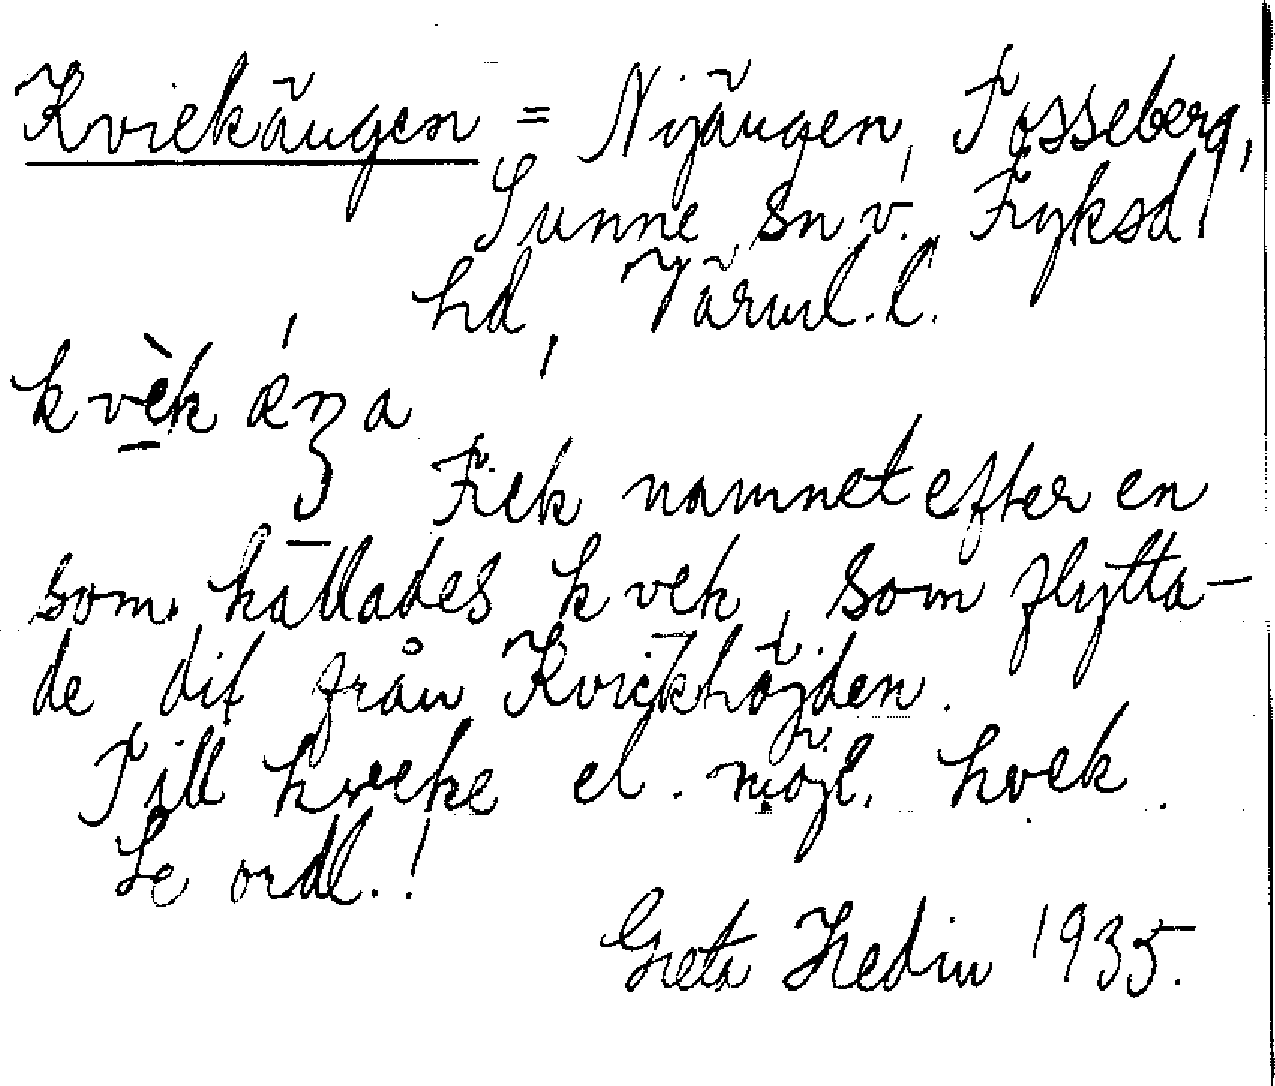 Kvickängen = Nyängen, Tosseberg,
Sunne sn v. Fryksd.
hd, Värml. l.
kvèk ǽŋa
Fick namnet efter en
som kallades kvek, som flytta-
de dit från Kvickhöjden.
Till kveke el. möjl. kvek.
Se ordl.!
Greta Hedin 1935.